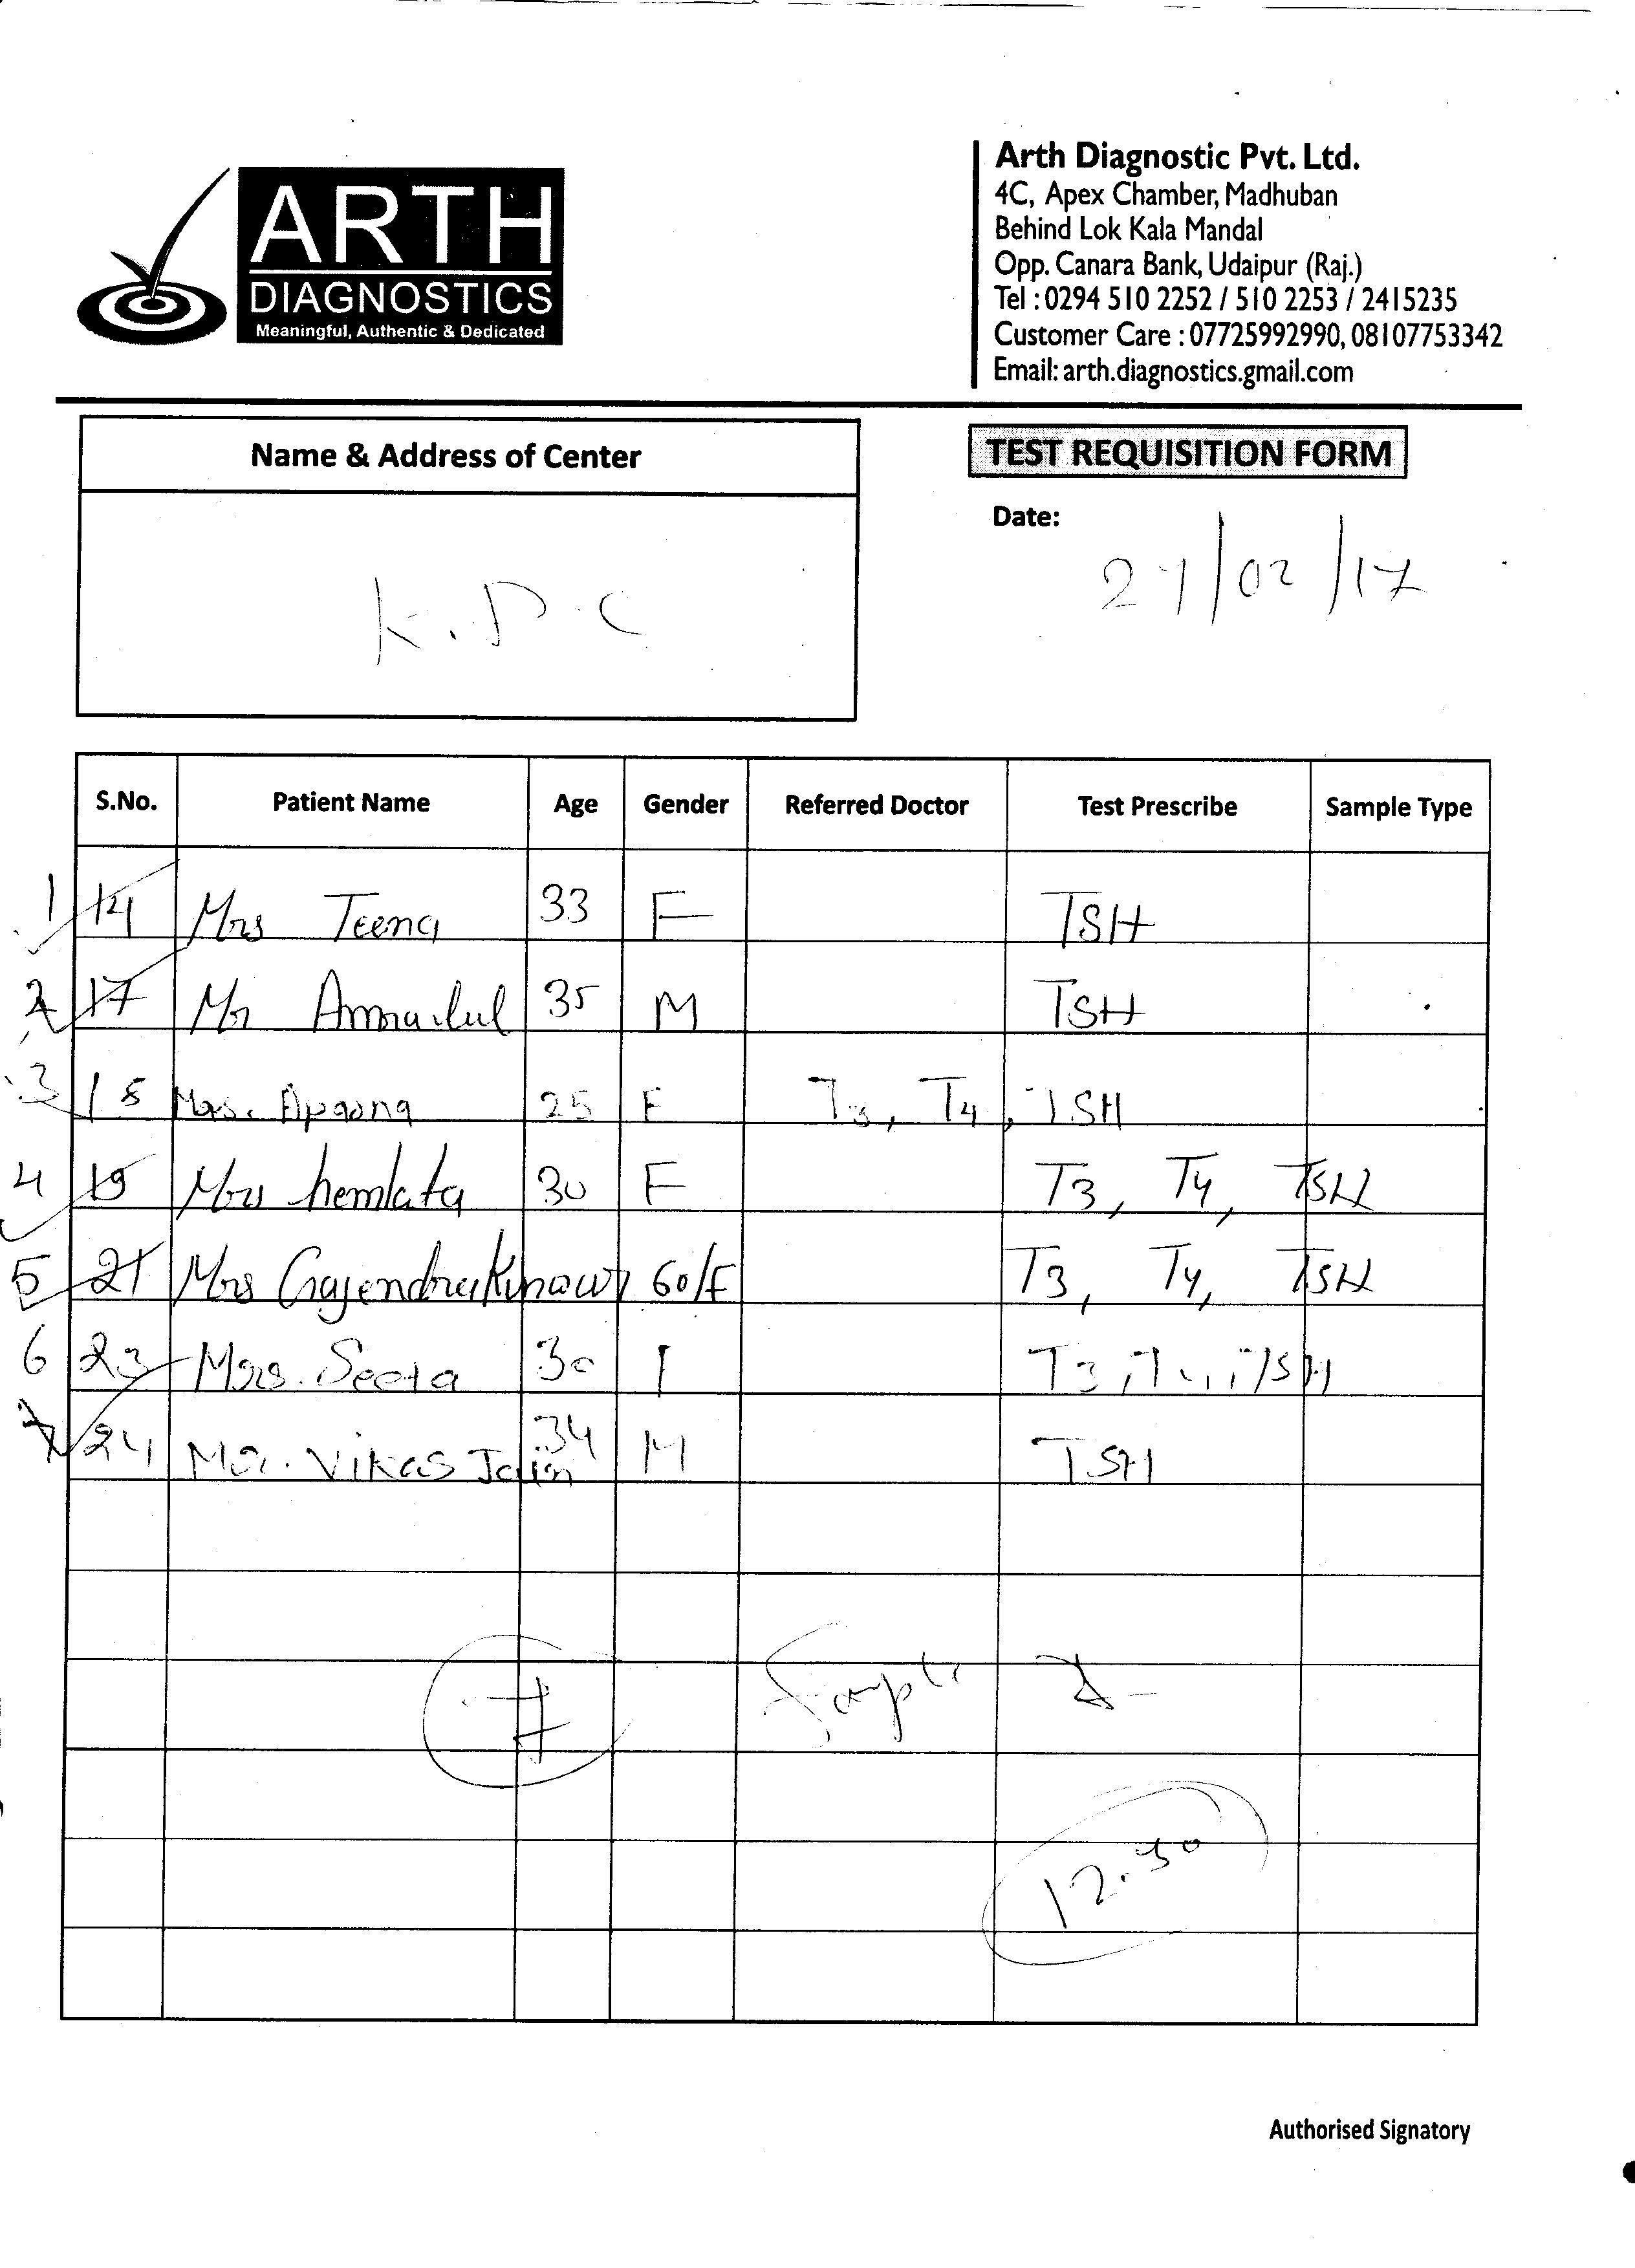 ARTH
DIAGNOSTICS
Meaningful, Authentic & Dedicated
Arth Diagnostic Pvt. Ltd.
4C, Apex Chamber, Madhuban
Behind Lok Kala Mandal
Opp. Canara Bank, Udaipur (Raj.)
Tel : 0294 510 2252 / 510 2253 / 2415235
Customer Care : 07725992990, 08107753342
Email: arth.diagnostics.gmail.com
Name & Address of Center
TEST REQUISITION FORM
Date:
/02/17
K.D.C
S.No. Patient Name Age Gender Referred Doctor Test Prescribe Sample Type
1 14 Mrs Teena 33 F TSH
2 17 Mr 35 M TSH
3 18 Mrs. 25 F T3, T4, TSH
4 19 Mrs hemlata 30 F T3, T4, TSH
5 21 Mrs 60/F T3, T4, TSH
6 23 Mrs. Seeta 30 F T3, T4, TSH
7 24 Mr. Vikas Jain 34 M TSH
7 Sample
12.30
Authorised Signatory